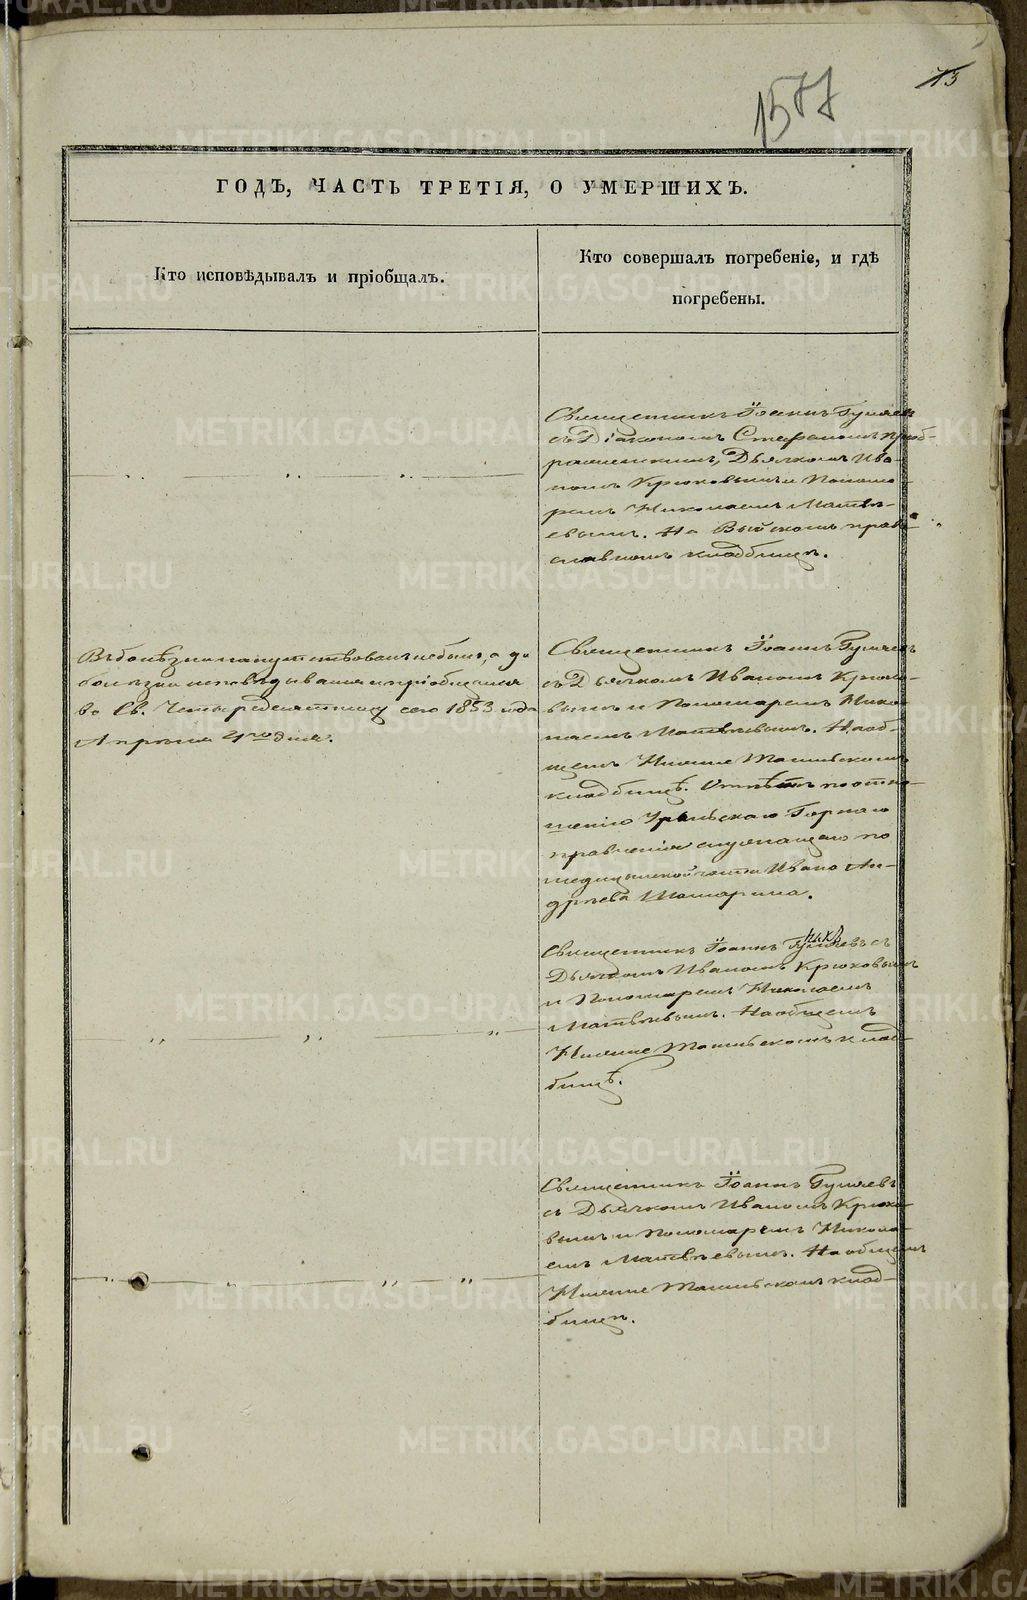 1577
ГОДЪ, ЧАСТЬ ТРЕТІЯ, О УМЕРШИХЪ.
Кто исповѣдывалъ и пріобщалъ.
Кто совершалъ погребеніе, и гдѣ
погребены.
Священникъ Іоаннъ Гуляевъ
съ Діакономъ Стефаномъ Преоб-
раженскимъ, Дьячкомъ Ива-
номъ Крюковымъ и Понома-
ремъ Николаемъ Матвѣ-
евымъ. На Выйскомъ право-
славномъ кладбищѣ.
Въ болѣзни напутствованъ не былъ, а до
болѣзни исповѣдывался и пріобщался
во Св. Четыредесятницу сего 1853 года
Апрѣля 4го дня.
Священникъ Іоаннъ Гуляевъ
съ Дьячкомъ Иваномъ Крюко-
вымъ и Пономаремъ Нико-
лаемъ Матвѣевымъ. На об-
щемъ Нижне Тагильскомъ
кладбищѣ. Отпѣтъ по отно-
шенію Уральскаго Горнаго
правленія служащаго по
медицинской части Ивана Ан-
дреева
Священникъ Іоаннъ Гуляевъ съ
Дьячкомъ Иваномъ Крюковымъ
и Пономаремъ Николаемъ
Матвѣевымъ. На общемъ
Нижне Тагильскомъ клад-
бищѣ.
Священникъ Іоаннъ Гуляевъ
съ Дьячкомъ Иваномъ Крюко-
вымъ и Пономаремъ Никола-
емъ Матвѣевымъ. На общемъ
Нижне Тагильскомъ клад-
бищѣ.
METRIKI.GASO-URAL.RU